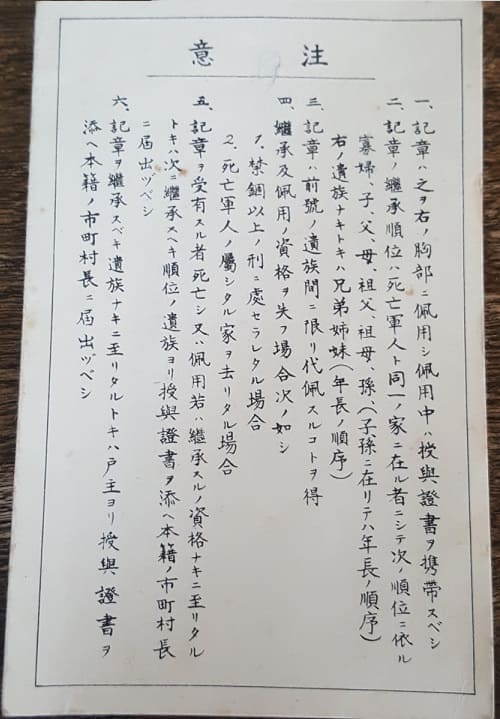 注意
一、記章ハ之ヲ右ノ胸部ニ佩用シ佩用中ハ授與證書ヲ携帶スベシ
二、記章ノ繼承順位ハ死亡軍人ト同一ノ家ニ在ル者ニシテ次ノ順位ニ依ル
寡婦、子、父、母、祖父、祖母、孫、(子孫ニ在リテハ年長ノ順序)
右ノ遺族ナキトキハ兄弟姉妹(年長ノ順序)
三、記章ハ前號ノ遺族間ニ限リ代佩スルコトヲ得
四、繼承及佩用ノ資格ヲ失フ場合次ノ如シ
1、禁錮以上ノ刑ニ處セラレタル場合
2、死亡軍人ノ屬シタル家ヲ去リタル場合
五、記章ヲ受有スル者死亡シ又ハ佩用若ハ繼承スルノ資格ナキニ至リタル
トキハ次ニ繼承スヘキ順位ノ遺族ヨリ授與證書ヲ添ヘ本籍ノ市町村長
ニ屆出ヅベシ
六、記章ヲ繼承スベキ遺族ナキニ至リタルトキハ戸主ヨリ授與證書ヲ
添ヘ本籍ノ市町村長ニ屆出ヅベシ